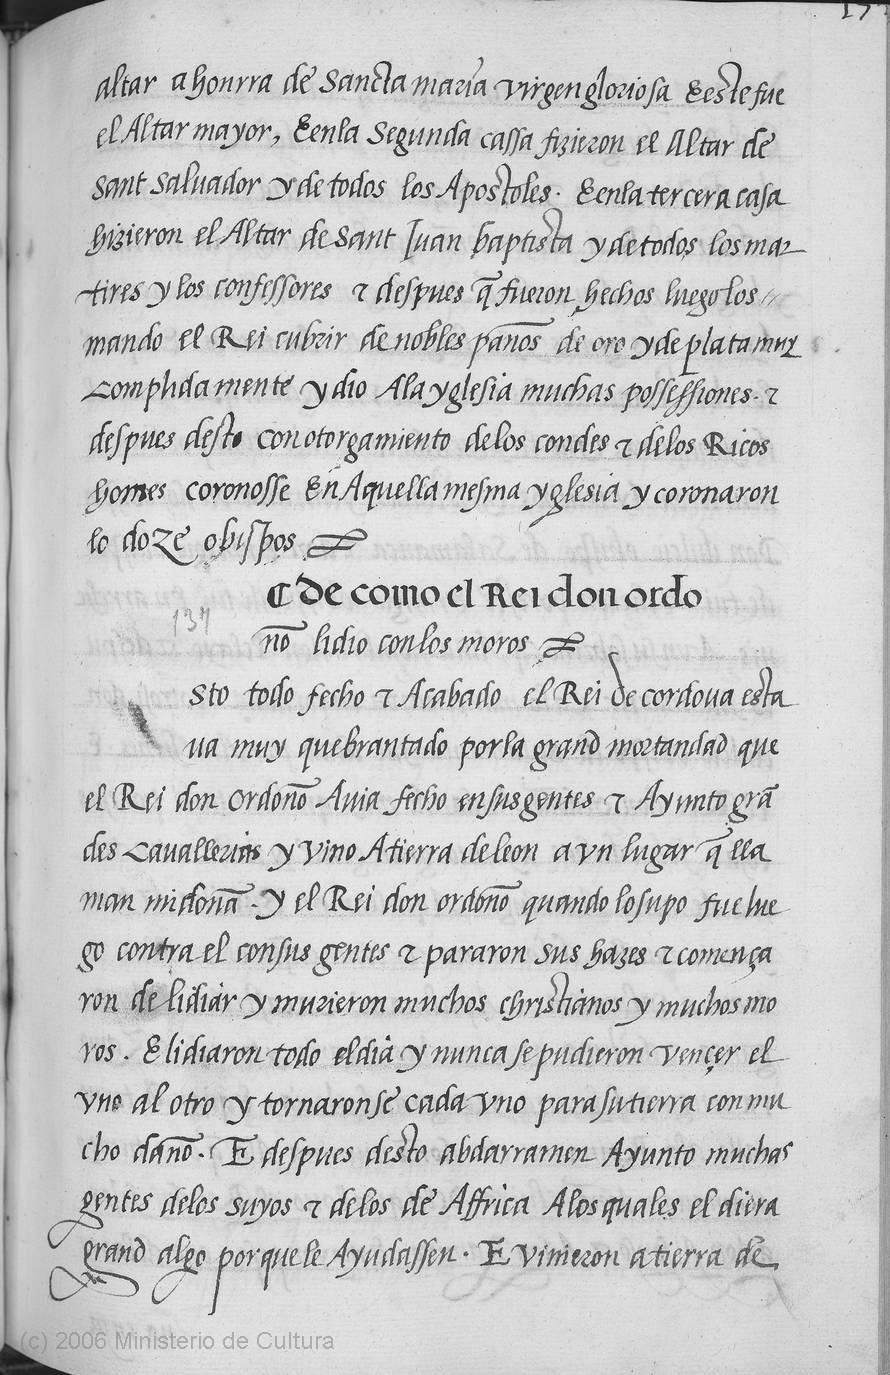 altar a honrra de Sancta maria virgen gloriosa E este fue
el Altar mayor, E en la Segunda cassa fizieron el Altar de
Sant Saluador y de todos los Apostoles. E en la tercera casa
hizieron el Altar de Sant Juan baptista y de todos los mar
tires y los confessores & despues q̃ fueron hechos luego los
mando el Rei cubrir de nobles pan̄os de oro y de plata muy
complida mente y dio A la yglesia muchas possessiones. &
despues desto con otorgamiento de los condes & de los Ricos
homes coronosse En Aquella mesma yglesia y coronaron
lo doze obispos
¶ de como el Rei don ordo
137
n̄o lidio con los moros
Sto todo fecho & Acabado el Rei de cordoua esta
ua muy quebrantado por la grand mortandad que
el Rei don Ordon̄o Auia fecho en sus gentes & Ayunto grã
des Cauallerias y Vino A tierra de leon a vn lugar q̃ lla
man midon̄a. y el Rei don ordon̄o quando lo supo fue lue
go contra el con sus gentes & pararon sus hazes & comença
ron de lidiar y murieron muchos christianos y muchos mo
ros. E lidiaron todo el dia y nunca se pudieron vençer el
vno al otro y tornaronse cada vno para su tierra con mu
cho dan̄o. E despues desto abdarramen Ayunto muchas
gentes de los suyos & de los de Affrica A los quales el diera
grand algo por que le Ayudassen. E Vinieron a tierra de
(c) 2006 Ministerio de Cultura